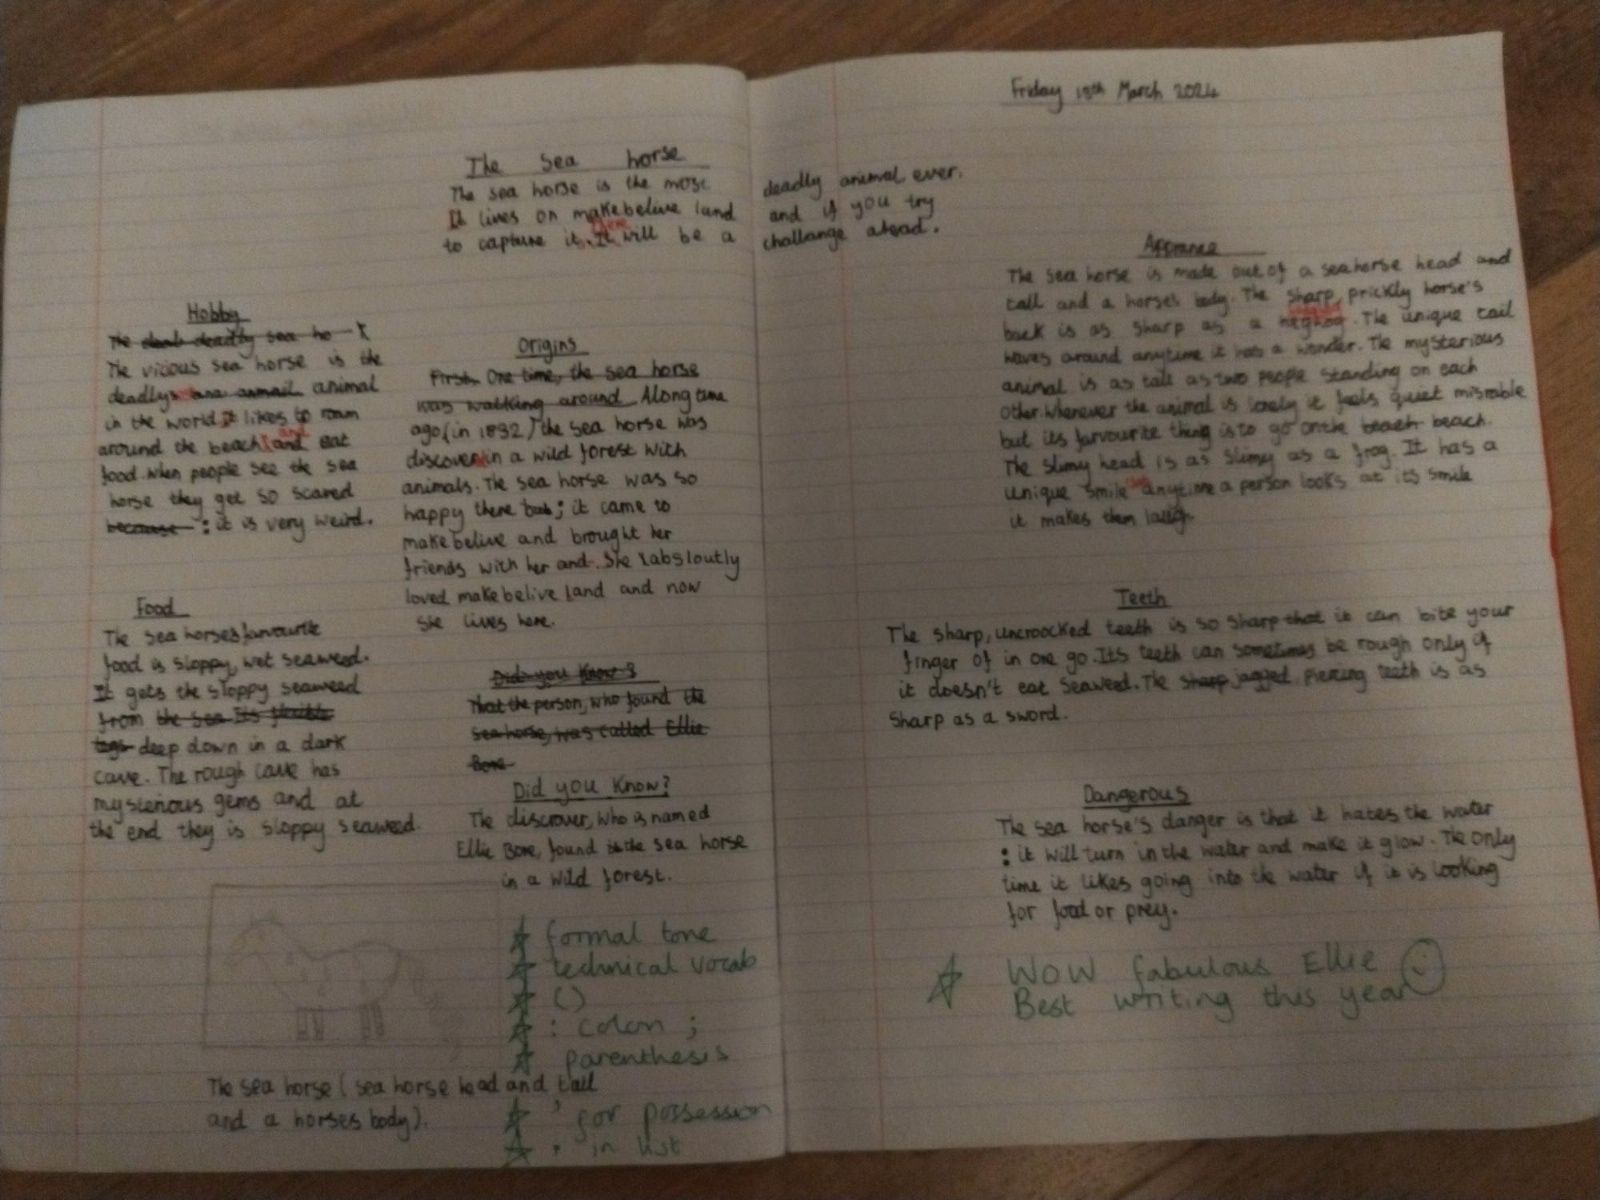 Friday 15th March 2024
The Sea horse
The sea horse is the most deadly animal ever.
It lives on makebelive land and if you try
to capture it. There will be a challange ahead.
Hobby
The vicious sea horse is the
deadly animal
in the world. It likes to roam
around the beach and eat
food. when people see the sea
horse they get so scared
: it is very weird.
Food
The sea horses farvourite
food is sloppy, wet seaweed.
It gets the sloppy seaweed
deep down in a dark
cave. The rough cave has
mysterious gems and at
the end they is sloppy seaweed.
The sea horse (sea horse head and tail
and a horses body).
Origins
First, One time, the sea horse
was walking around Along time
ago (in 1892) the sea horse was
discover in a wild forest with
animals. The sea horse was so
happy there but ; it came to
makebelive and brought her
friends with her and. She absloutly
loved makebelive land and now
she lives here.
Did you know?
That the person, who found the
sea horse, was called Ellie
Bore
Did you know?
The discrover, who is named
Ellie Bore, found the sea horse
in a wild forest.
formal tone
technical vocab
()
: colon ;
parenthesis
' for possession
, in list
Apprance
The sea horse is made out of a seahorse head and
tail and a horses body. The sharp, prickly horse's
back is as sharp as a . The unique tail
waves around anytime it has a wonder. The mysterious
animal is as tall as two people standing on each
other. Whenever the animal is lonely it feels quiet misrable
but its farvourite thing is to go on the beach beach.
The slimy head is as slimy as a frog. It has a
unique smile anytime a person looks at its smile
it makes them laugh.
Teeth
The sharp, uncroocked teeth is so sharp that it can bite your
finger of in one go. Its teeth can sometimes be rough only if
it doesn't eat seaweed. The sharp jagged, piercing teeth is as
sharp as a sword.
Dangerous
The sea horse's danger is that it hates the water
: it will turn in the water and make it glow. The only
time it likes going into the water if it is looking
for food or prey.
WOW fabulous Ellie
Best writing this year